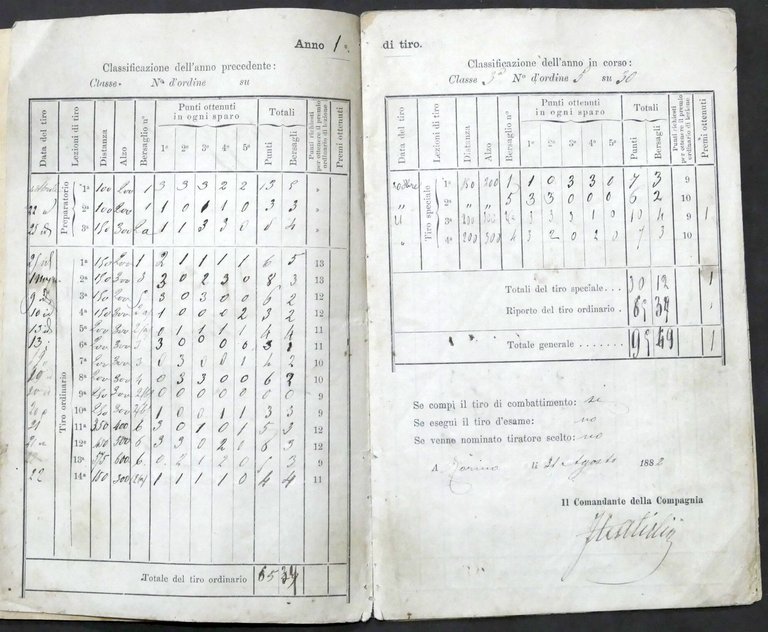 Anno 1º di tiro.
Classificazione dell'anno precedente:
Classe. Nº d'ordine su
Data del tiro
Lezioni di tiro
Distanza
Alzo
Bersaglio nº
Punti ottenuti in ogni sparo
1º 2º 3º 4º 5º
Totali
Punti
Bersagli
Punti richiesti per ottenere il premio ordinario di lezione
Premi ottenuti
Preparatorio
1ª 100 200 1 3 3 3 2 2 13 5 »
2ª 100 200 1 1 0 1 1 0 3 3 »
3ª 150 300 1 1 3 3 0 8 4 »
Tiro ordinario
1ª 150 200 1 2 1 1 1 1 6 5 13
2ª 150 300 3 3 0 2 3 0 8 3 13
3ª 150 300 3 0 3 0 0 6 2 12
4ª 150 300 1 0 0 0 2 3 2 12
5ª 200 300 0 1 1 1 1 4 4 11
6ª 200 300 3 0 0 0 0 3 1 11
7ª 200 300 0 3 0 0 1 4 2 10
8ª 200 300 0 3 3 0 0 6 2 10
9ª 300 0 0 0 0 0 0 0 9
10ª 300 1 0 0 1 1 3 3 9
11ª 350 400 6 3 0 1 0 1 5 3 12
12ª 500 6 3 3 0 2 0 8 3 12
13ª 600 6 0 2 1 2 0 5 3 9
14ª 150 300 1 1 1 1 0 4 4 11
Totale del tiro ordinario 65 39
Classificazione dell'anno in corso:
Classe 3ª Nº d'ordine 5 su 30
Data del tiro
Lezioni di tiro
Distanza
Alzo
Bersaglio nº
Punti ottenuti in ogni sparo
1º 2º 3º 4º 5º
Totali
Punti
Bersagli
Punti richiesti per ottenere il premio ordinario di lezione
Premi ottenuti
Tiro speciale
1ª 150 200 1 1 0 3 3 0 7 3 9
2ª „ „ 5 3 3 0 0 0 6 2 10
3ª 200 300 3 3 1 0 10 4 9 1
4ª 200 300 4 3 2 0 2 0 7 3 10
Totali del tiro speciale... 30 12 1
Riporto del tiro ordinario 65 39
Totale generale ....... 95 1
Se compì il tiro di combattimento: si
Se eseguì il tiro d'esame: no
Se venne nominato tiratore scelto: no
A Torino li 31 Agosto 1882
Il Comandante della Compagnia